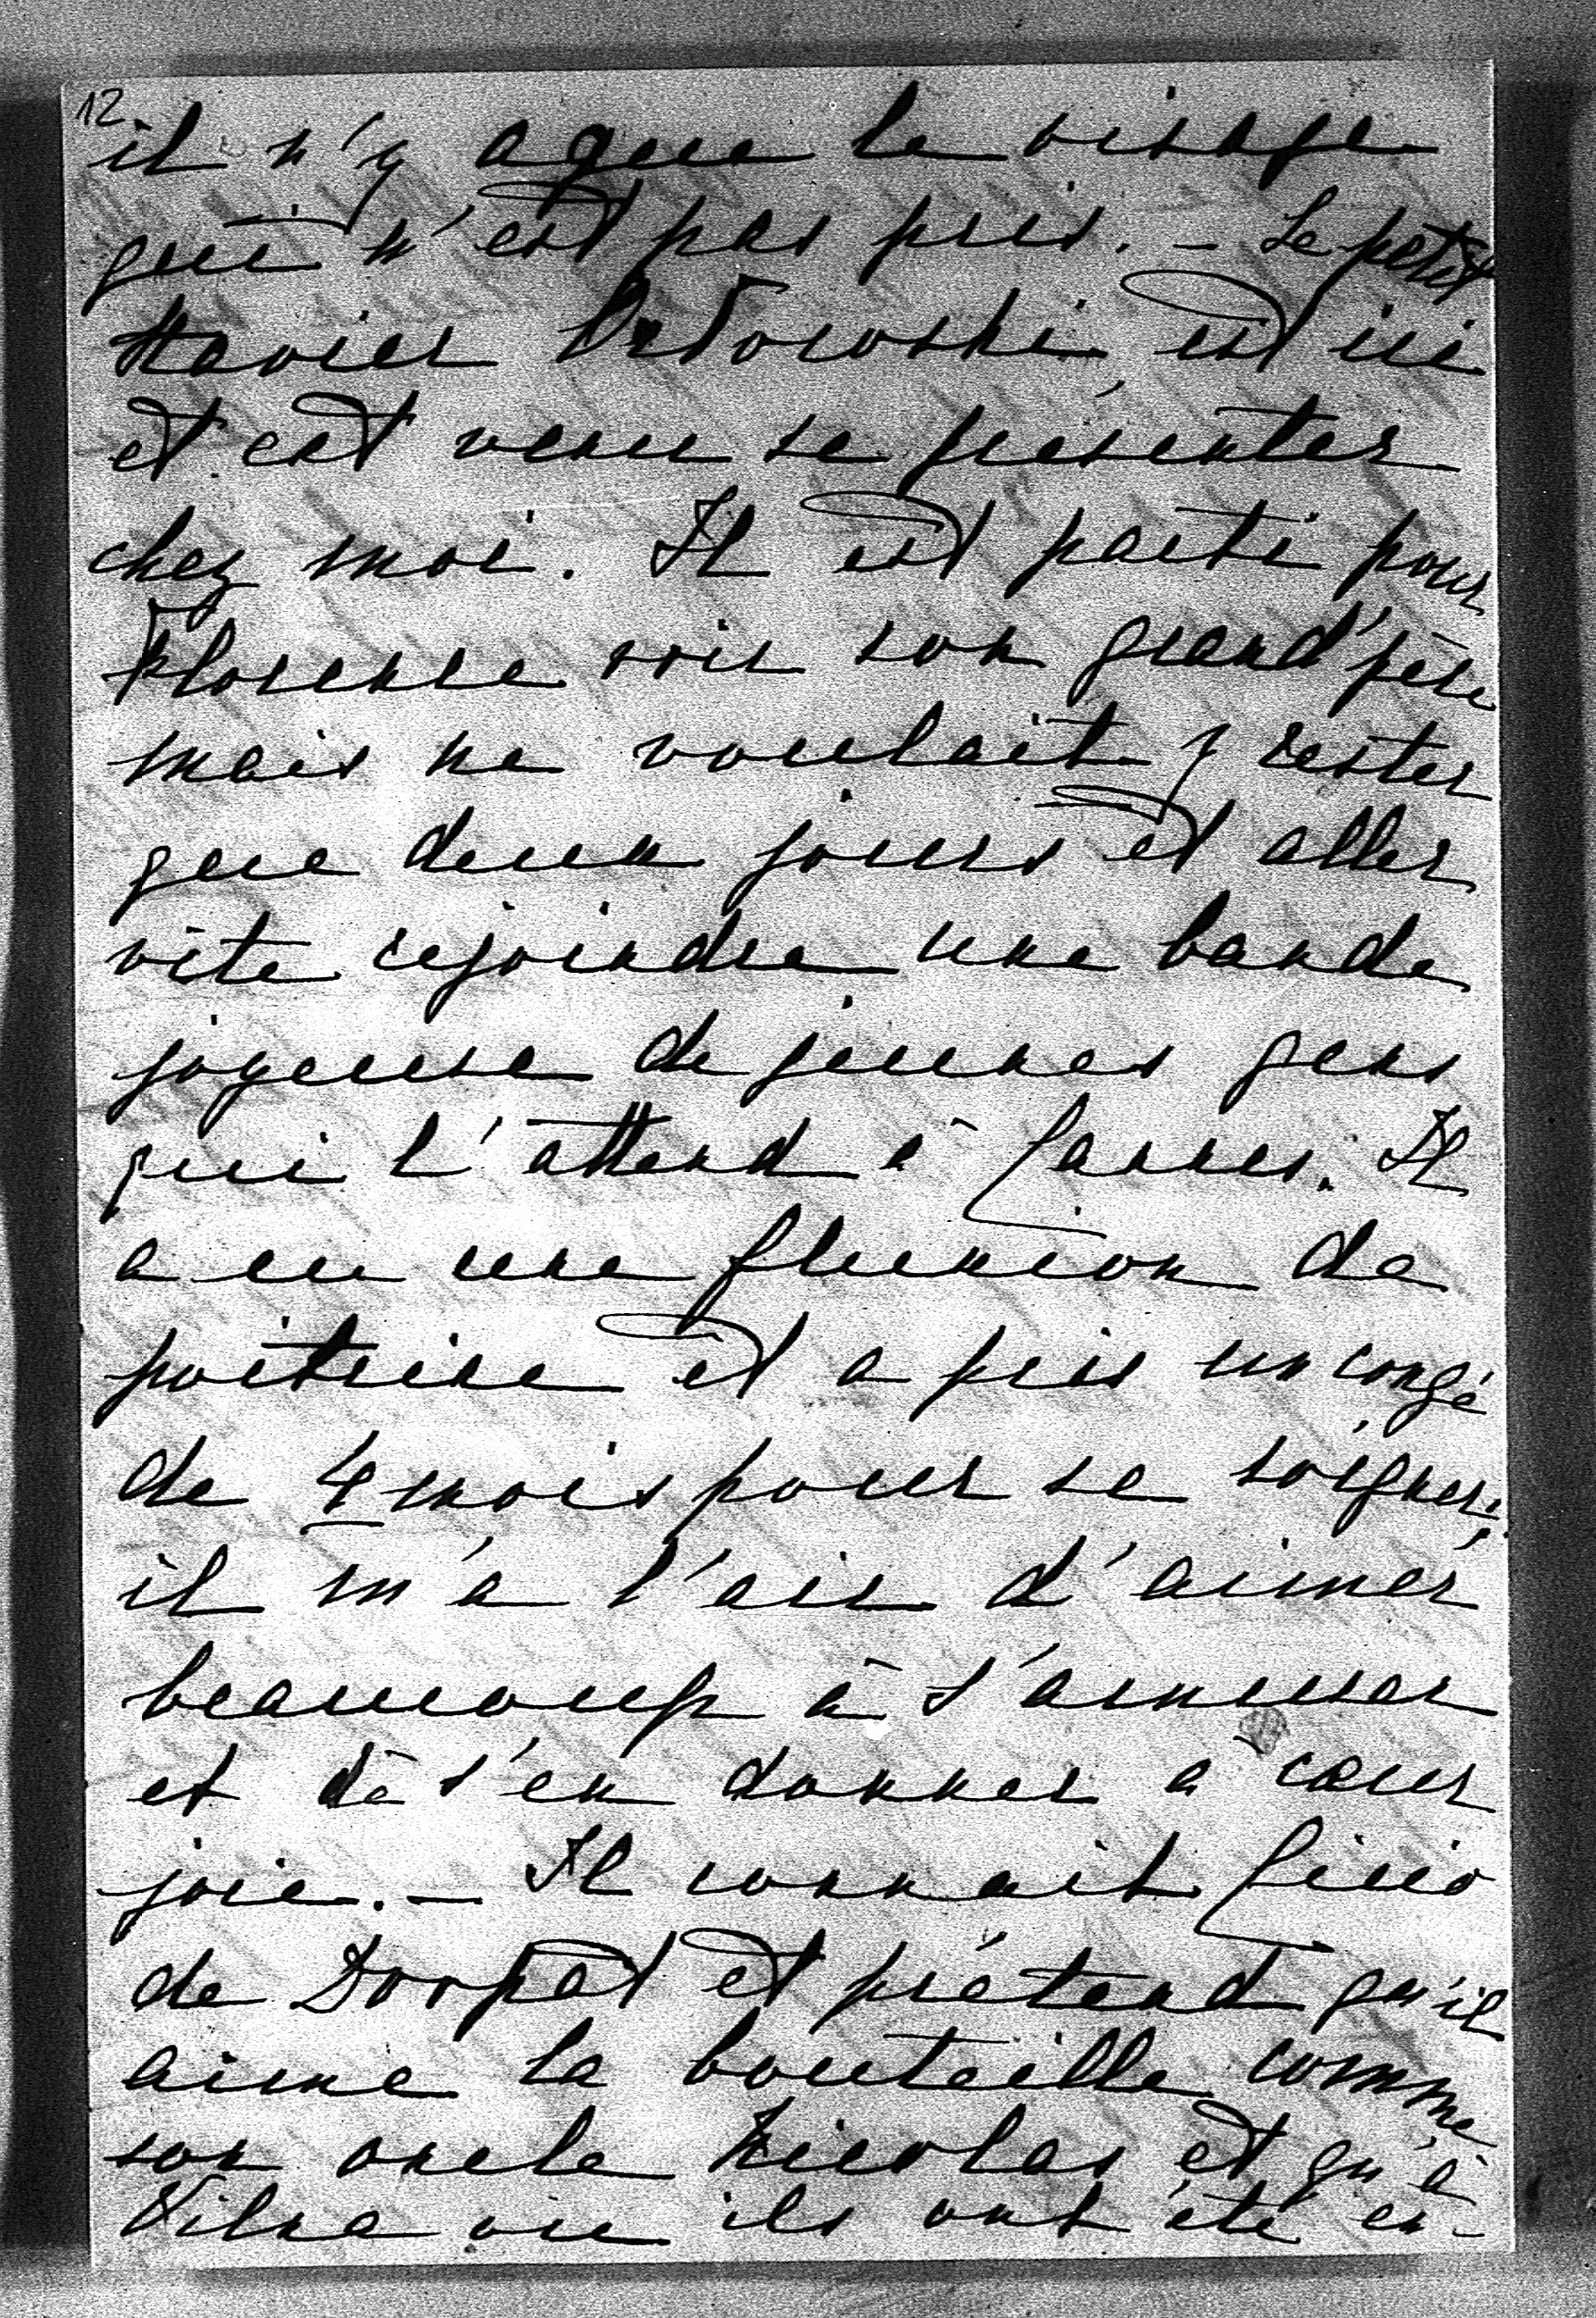 12
il n'y a que le visage
qui n'est pas pris. – Le petit
Xavier Orłowski est ici
et est venu se présenter
chez moi. Il est parti pour
Florence voir son grand'père
mais ne voulait y rester
que deux jours et aller
vite rejoindre une bande
joyeuse de jeunes gens
qui l'attend à Cannes. Il
a eu une fluxion de
poitrine et a pris un congé
de 4 mois pour se soigner;
il m'a l'air d'aimer
beaucoup à s'amuser
et à s'en donner à cœur
joie. – Il connait
de Dorpat et prétend qu'il
aime la bouteille comme
son oncle Nicolas et qu'à
Vilna où ils ont été en-